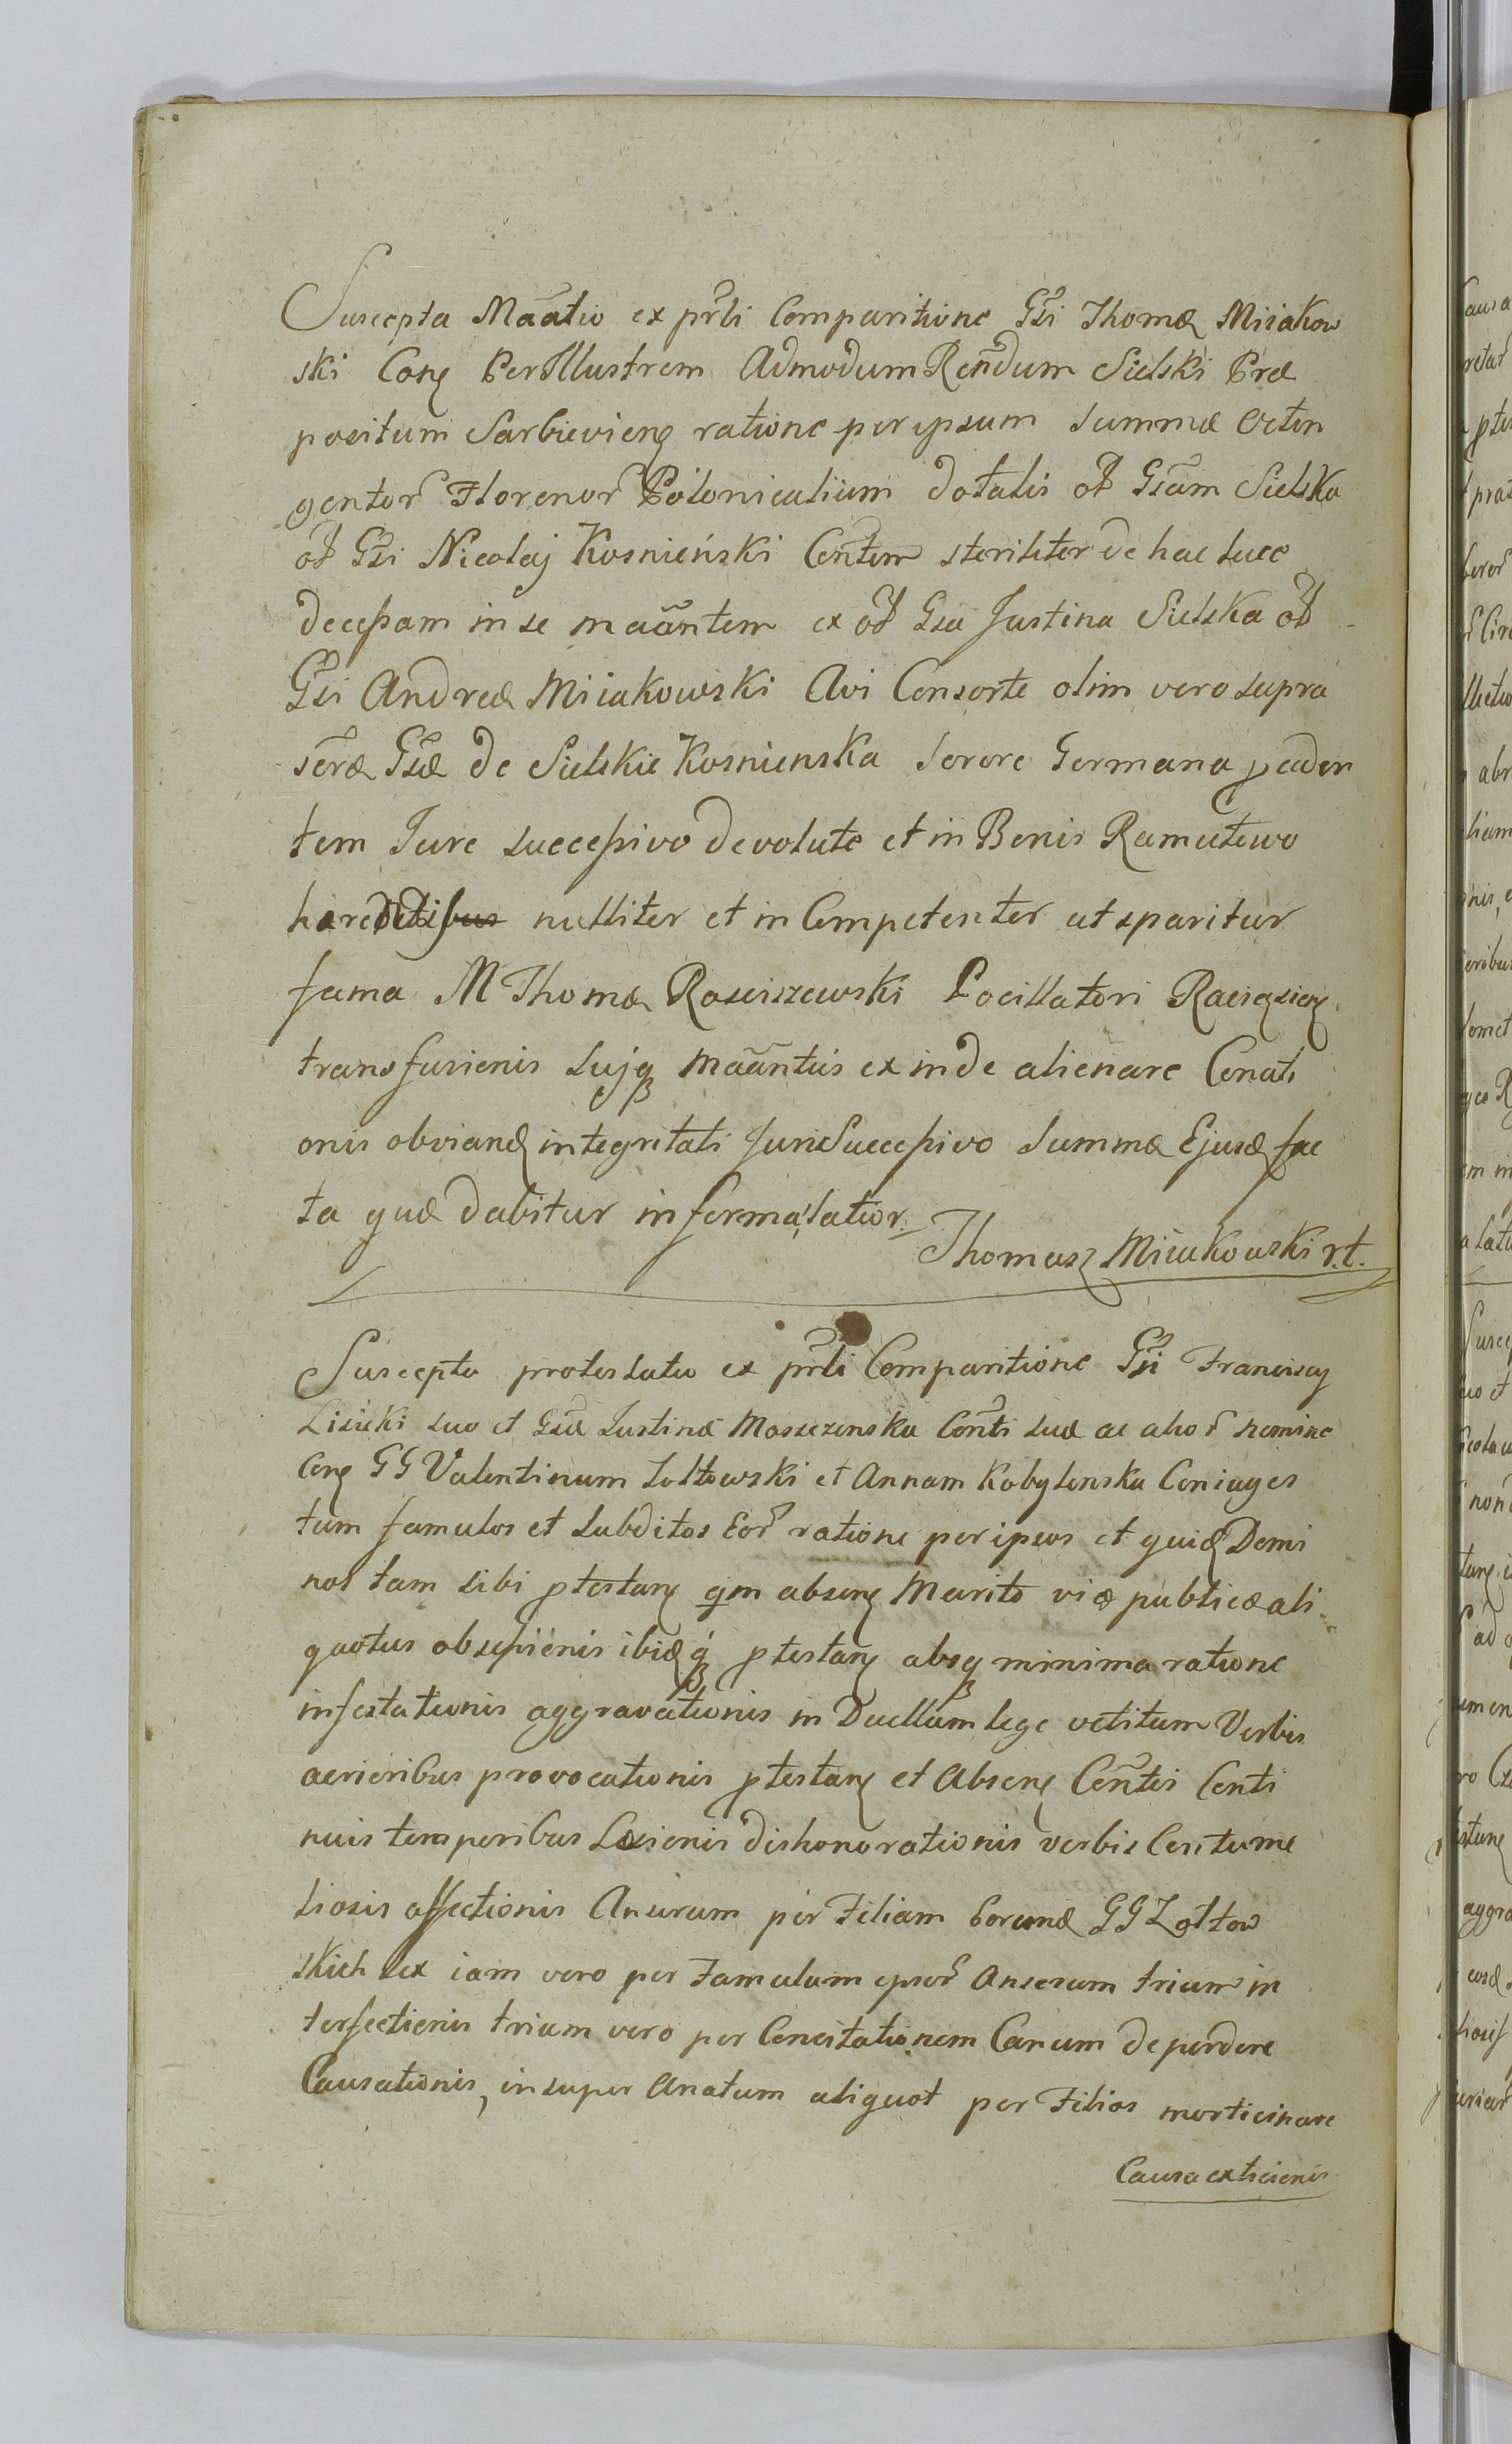 Suscepta Mãatio ex prli Comparitione Gsi Thomæ Miiakow
ski Conę Perillustrem Admodum Rendum Sielski Præ
positum Sarbievienę ratione per ipsum summæ Octin
gentor Florenor Polonicalium dotalis oł Gsam Sielska
oł Gsi Nicolaj Kosnieński Contem steriliter de hac luce
decessam in se maãntem ex oł Gsa Justina Sielska oł
Gsi Andreæ Miiakowski Avi Consorte olim vero supra
scræ Gsæ de Sielskie Kosnienska Sorore Germana pcaden
tem Jure successivo devolute et in Bonis Ramutowo
nulliter et in Competenter ut sparitur
fama M Thomæ Rosciszewski Pocillatori Raciązieę
transfusionis sujq maãntis ex inde alienare Conati
onis obviandę integritati Juri Successivo Summæ Ejusd fac
ta quæ dabitur in forma latior.
Thomasz Miiakowski r.t.
Suscepta protestatio ex prli Comparitione Gsi Francisci
Lisicki suo et Gsæ Justinæ Moszczenska Conti suæ ac alior nomine
Conę GG Valentinum Zołtowski et Annam Kobylenska Coniuges
tum famulos et subditos Eor ratione per ipsos et quid Domi
nos tam sibi ptestanę qm absenę Marito viæ publicæ ali
quotus obsessionis ibidq ptestanę absq minima ratione
infestationis aggravationis in Duellum lege vetitum Verbis
acrioribus provocationis ptestanę et Absenę Contis Conti
nuis temporibus Læsionis dishonorationis verbis Contume
liosis affectionis Anserum per Filiam Eorund GG Zołtow
skich sex iam vero per Famulum ipsor Anserum trium in
terfectionis trium vero per Concitationem Canum deperdere
Causationis, insuper Anatum aliquot per Filios morticinare
Causa